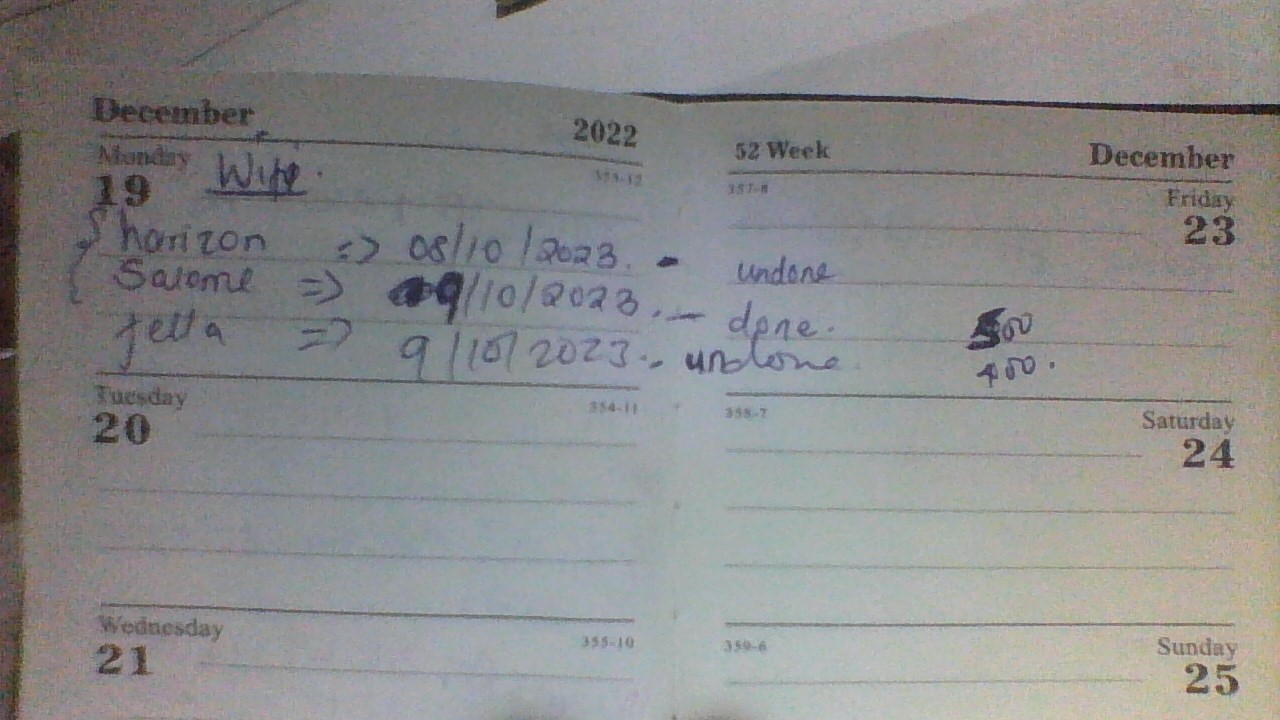 December 2022
Monday
19 Wife.
353-12
horizon => 08/10/2023. - undone
Salome => 9/10/2023. - done. 500
fella => 9/10/2023. - undone. 400.
Tuesday
20
354-11
Wednesday
21
355-10
52 Week December
357-8
Friday
23
358-7
Saturday
24
359-6
Sunday
25